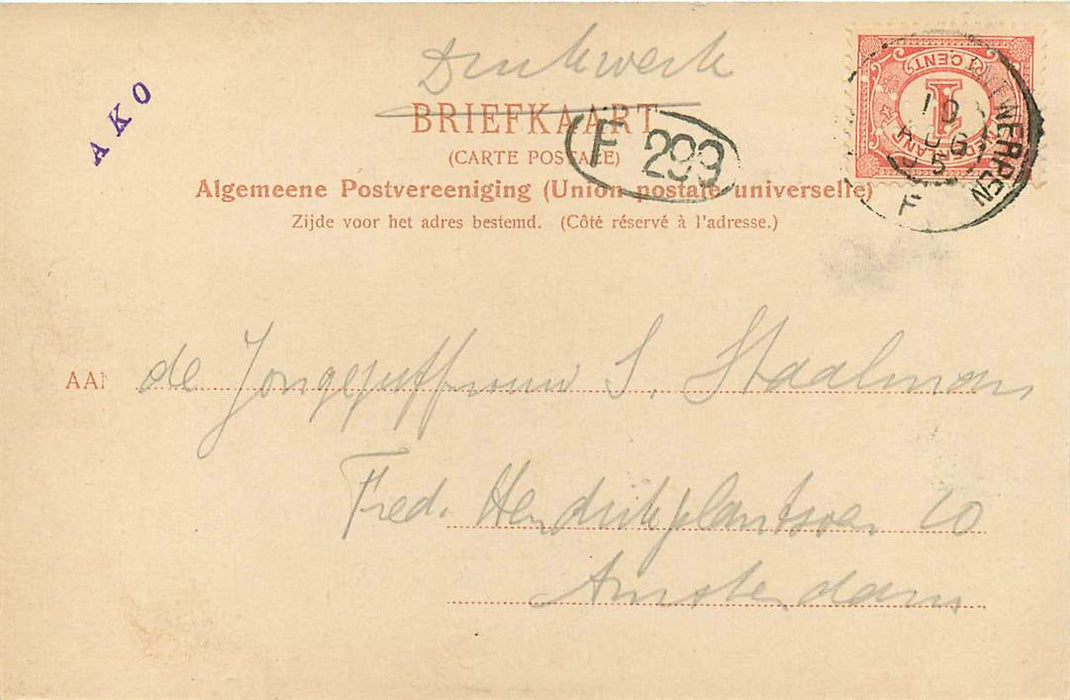 Drukwerk
BRIEFKAART
(CARTE POSTALE)
Algemeene Postvereeniging (Union postale universelle)
Zijde voor het adres bestemd. (Côté réservé à l'adresse.)
AKO
F 299
1 CENT
NEDERLAND
ANTWERPEN
10
AUG
F
AAN de Jongejuffrouw S. Staalman
Fred. Hendrikplantsoen 20
Amsterdam